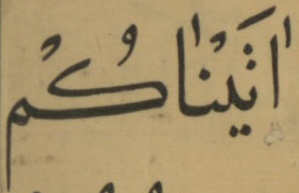 اٰتَيْنَاكُمْ